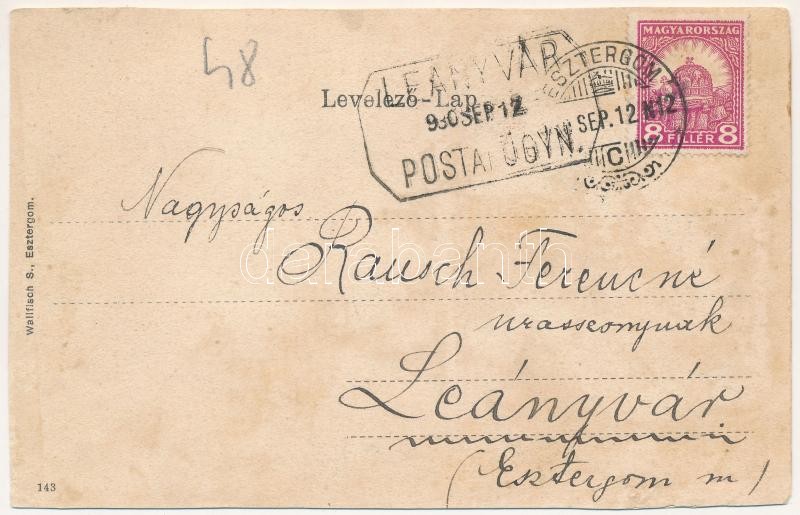 48
MAGYARORSZÁG
8 FILLÉR 8
ESZTERGOM
SEP.12 N12
C
LEÁNYVÁR
930 SEP 12
POSTAI ÜGYN.
Levelező-Lap
Nagyságos
Rausch Ferencné
urasszonynak
Leányvár
(Esztergom m)
Wallfisch S., Esztergom.
143
darabanth